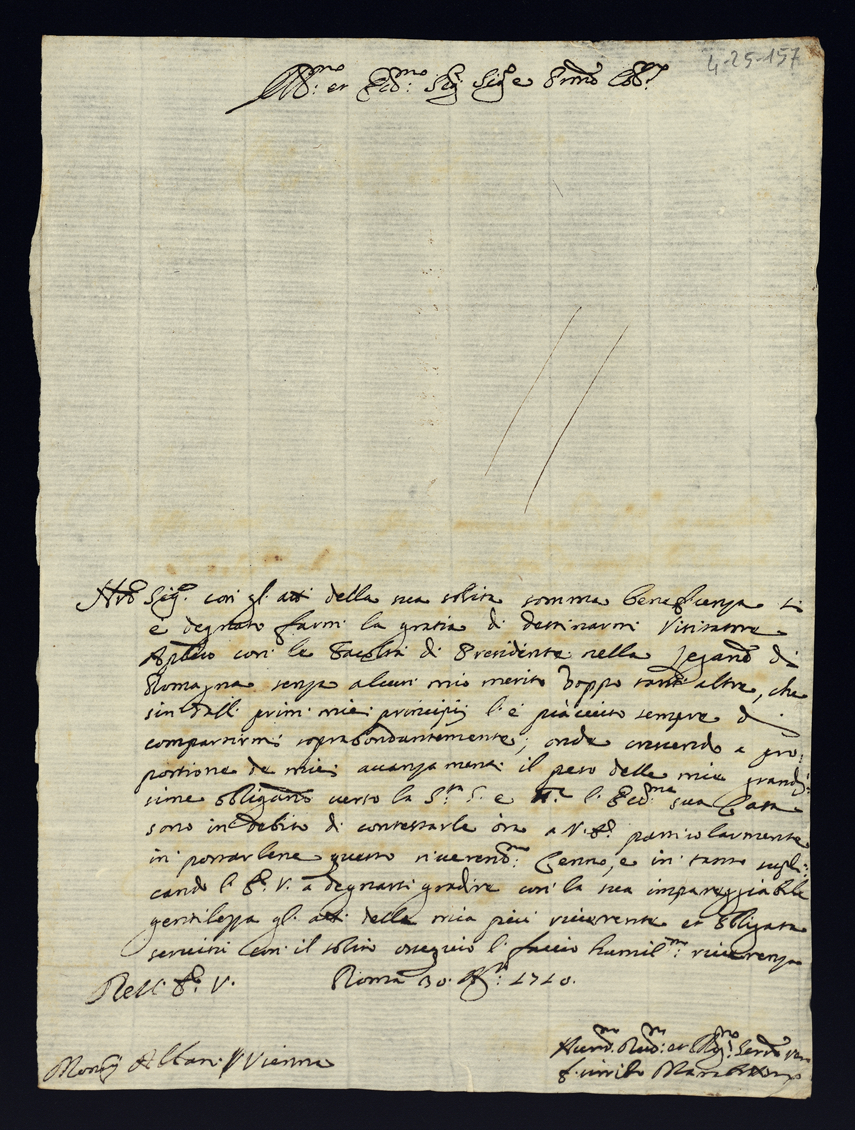 4-25-157
Ill:mo et Ecc:mo Sig.r Sig.re e P.rone Col.mo
N̄ro Sig.re con gl'atti della sua solita somma beneficenza si
è degnato farmi la gratia di destinarmi Visitatore
Aplico con le Facoltà di Presidente nella Legaz.ne di
Romagna senza alcun mio merito doppo tante altre, che
sin dalli primi miei principij l'è piaciuto sempre di
compartirmi soprabondantemente; onde crescendo a pro-
portione de miei avanzamenti il peso delle mie grandis-
sime obligaz.ni verso la S.tà S. e l'Ecc.ma sua Casa
sono in debito di contestarle ora a V.E. particolarmente
in portarlene questo riverend.mo Cenno, e in tanto suppli-
cando l'E.V. a degnarsi gradire con la sua impareggiabile
gentilezza gl'atti della mia più riverente et obligata
servitù con il solito ossequio le faccio humil.ma riverenza
Dell'E.V. Roma 30. 1710.
Mons.r Albani Vienna
Hum.mo Dev.mo et Obl.mo Serv.re vero